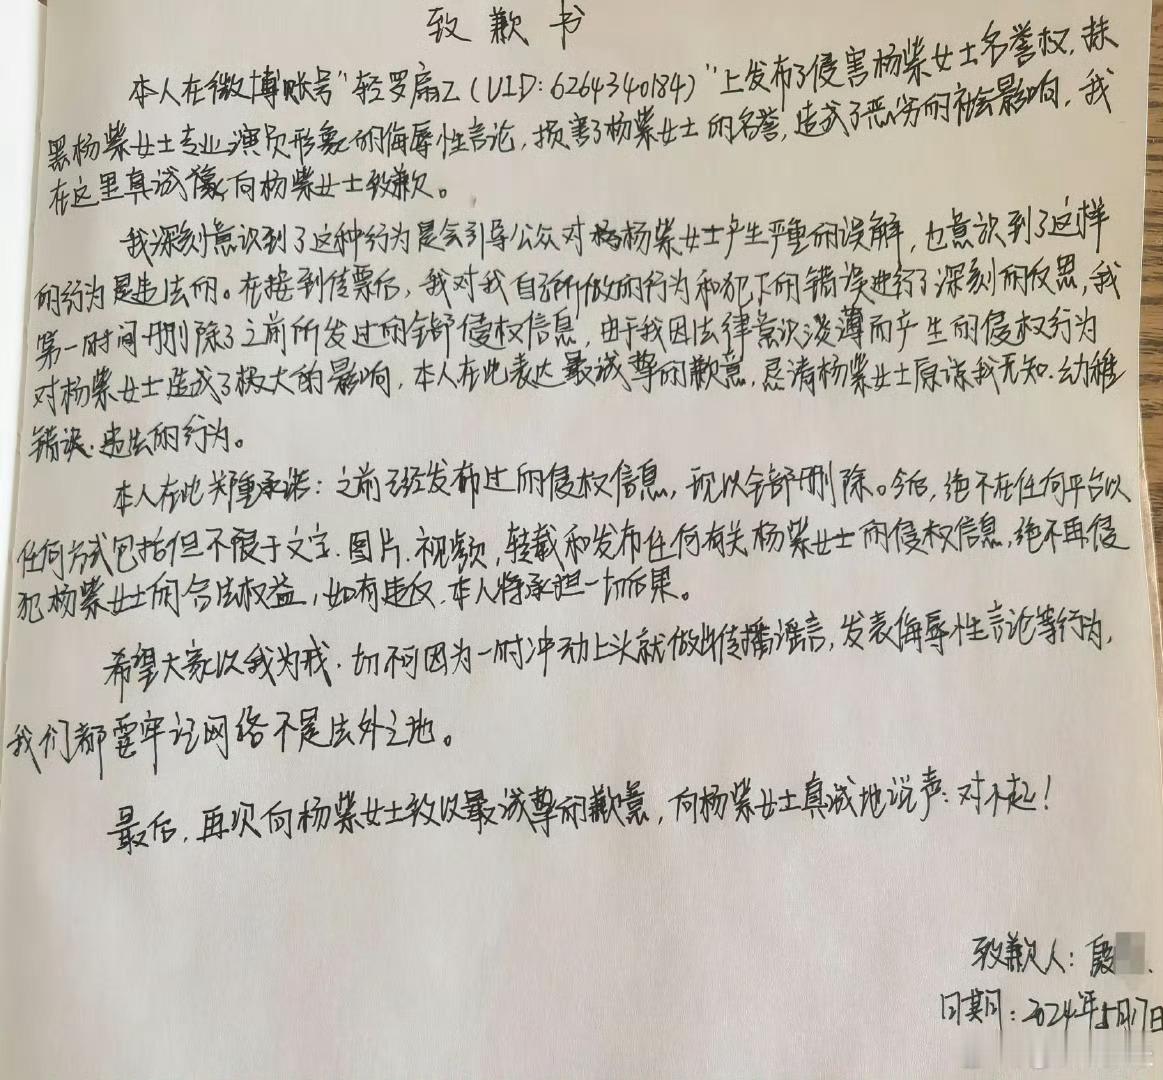 致歉书
本人在微博账号"轻罗扇Z(UID:6264340184)"上发布了侵害杨紫女士名誉权,抹
黑杨紫女士专业演员形象的侮辱性言论,损害了杨紫女士的名誉,造成了恶劣的社会影响,我
在这里真诚向杨紫女士致歉。
我深刻意识到了这种行为是会引导公众对杨紫女士产生严重的误解,也意识到了这样
的行为是违法的。在接到传票后,我对我自己所做的行为和犯下的错误进行了深刻的反思,我
第一时间删除了之前所发过的全部侵权信息,由于我因法律意识淡薄而产生的侵权行为
对杨紫女士造成了极大的影响,本人在此表达最诚挚的歉意,恳请杨紫女士原谅我无知、幼稚
错误、违法的行为。
本人在此郑重承诺:之前已经发布过的侵权信息,现以全部删除。今后,绝不在任何平台以
任何方式包括但不限于文字、图片、视频,转载和发布任何有关杨紫女士的侵权信息,绝不再侵
犯杨紫女士的合法权益,如有违反,本人将承担一切后果。
希望大家以我为戒,切不可因为一时冲动上头就做出传播谣言,发表侮辱性言论等行为,
我们都要牢记网络不是法外之地。
最后,再次向杨紫女士致以最诚挚的歉意,向杨紫女士真诚地说声:对不起!
致歉人:殷
日期:2024年5月17日